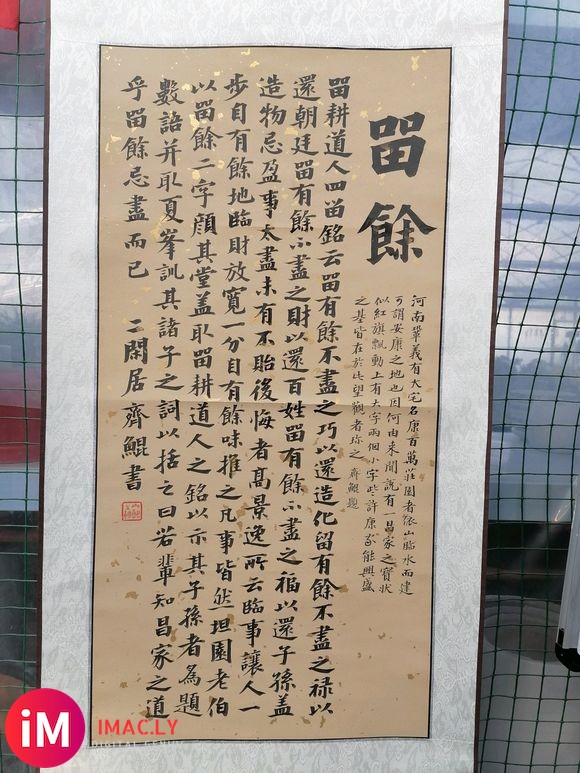 留餘
河南鞏義有大宅名康百萬莊園者依山臨水而建
可謂安康之地也因何由來聞說有一昌家之寶狀
似紅旗飄動上有大字兩個小字些許康家能興盛
之基皆在於此望觀者珍之 齊鯤題
留耕道人四留銘云留有餘不盡之巧以還造化留有餘不盡之禄以
還朝廷留有餘不盡之財以還百姓留有餘不盡之福以還子孫蓋
造物忌盈事太盡未有不貽後悔者高景逸所云臨事讓人一
步自有餘地臨財放寬一分自有餘味推之凡事皆然坦園老伯
以留餘二字顏其堂蓋取留耕道人之銘以示其子孫者為題
數語并取夏峯訓其諸子之詞以括之曰若輩知昌家之道
乎留餘忌盡而已 二閑居齊鯤書
iM
IMAC.LY